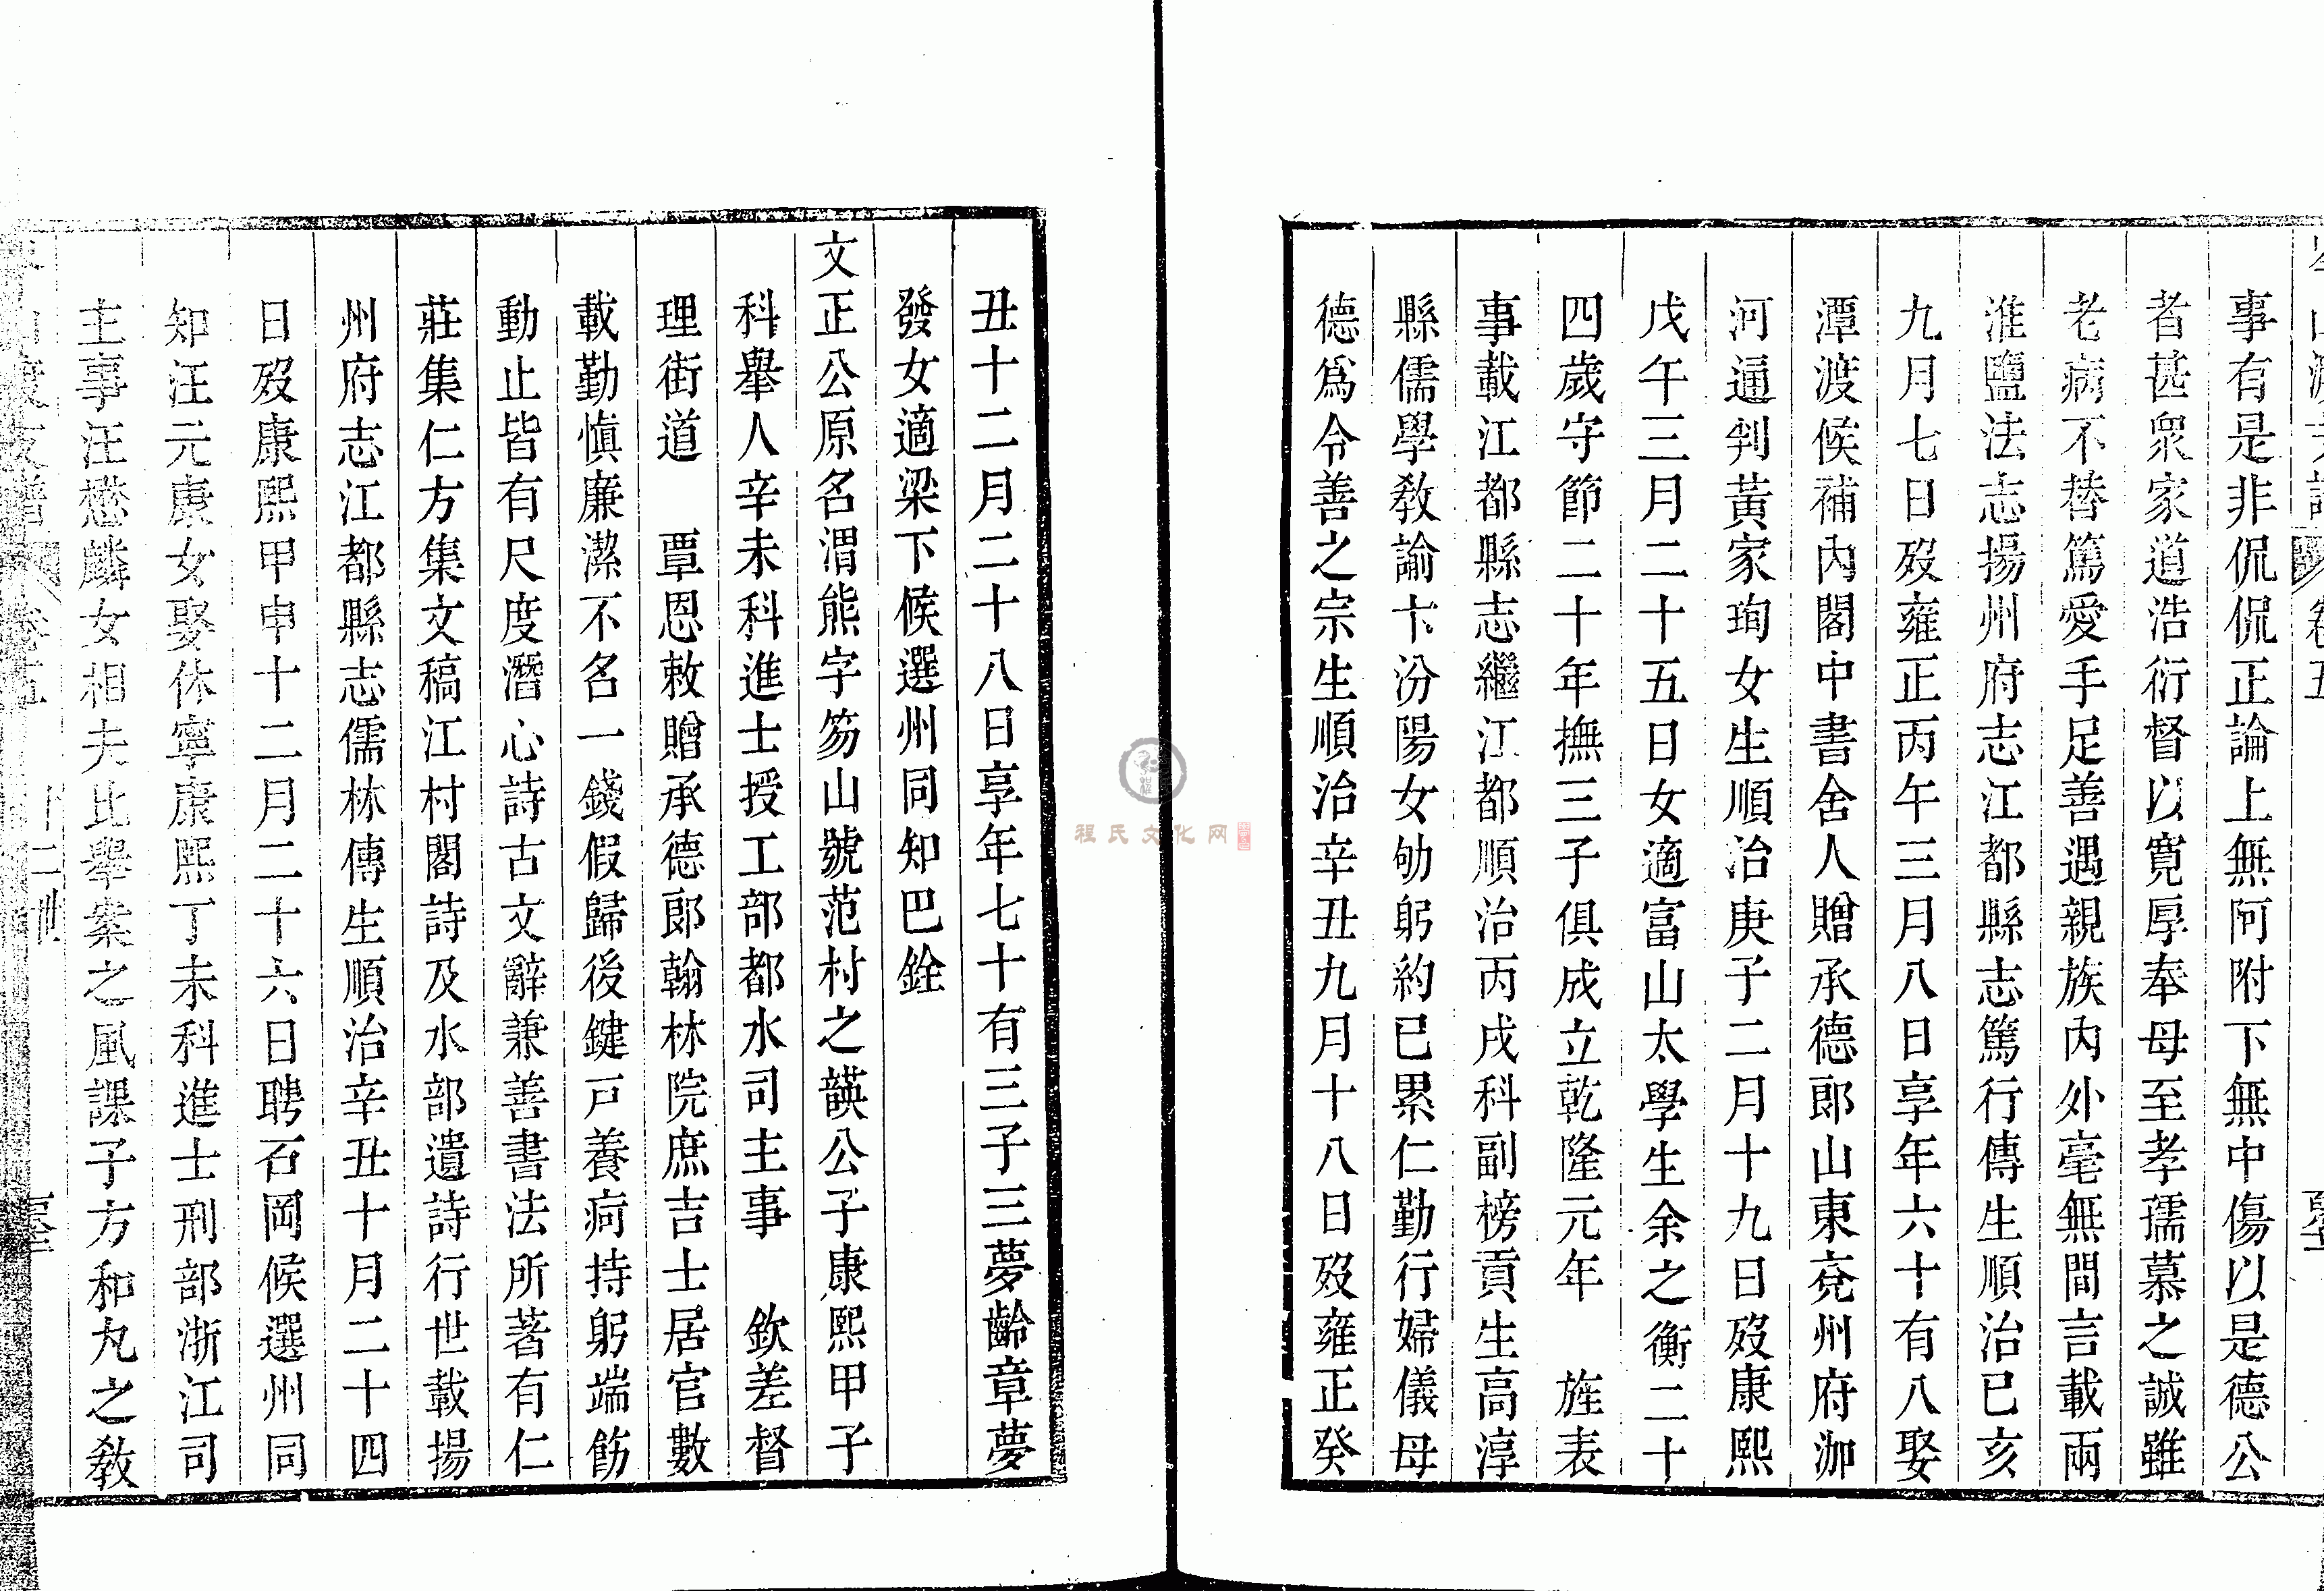 事有是非侃侃正論上無阿附下無中傷以是德公
者甚衆家道浩衍督以寬厚奉母至孝孺慕之誠雖
老病不替篤愛手足善遇親族內外毫無間言載兩
淮鹽法志揚州府志江都縣志篤行傳生順治己亥
九月七日歿雍正丙午三月八日享年六十有八娶
潭渡候補內閣中書舍人贈承德郎山東兗州府泇
河通判黃家珣女生順治庚子二月十九日歿康熙
戊午三月二十五日女適富山太學生余之衡二十
四歲守節二十年撫三子俱成立乾隆元年 旌表
事載江都縣志繼江都順治丙戌科副榜貢生高淳
縣儒學教諭卞汾陽女劬躬約已累仁勤行婦儀母
德爲令善之宗生順治辛丑九月十八日歿雍正癸
丑十二月二十八日享年七十有三子三夢齡章夢
發女適梁下候選州同知巴銓
文正公原名渭熊字笏山號范村之韺公子康熙甲子
科舉人辛未科進士授工部都水司主事 欽差督
理街道 覃恩敕贈承德郎翰林院庶吉士居官數
載勤愼廉潔不名一錢假歸後鍵戸養疴持躬端飭
動止皆有尺度潛心詩古文辭兼善書法所著有仁
莊集仁方集文稿江村閣詩及水部遺詩行世載揚
州府志江都縣志儒林傳生順治辛丑十月二十四
日歿康熙甲申十二月二十六日聘石岡候選州同
知汪元康女娶休寧康熙丁未科進士刑部浙江司
主事汪懋麟女相夫比舉案之風課子方和丸之教
卷五 十二世
程氏文化网